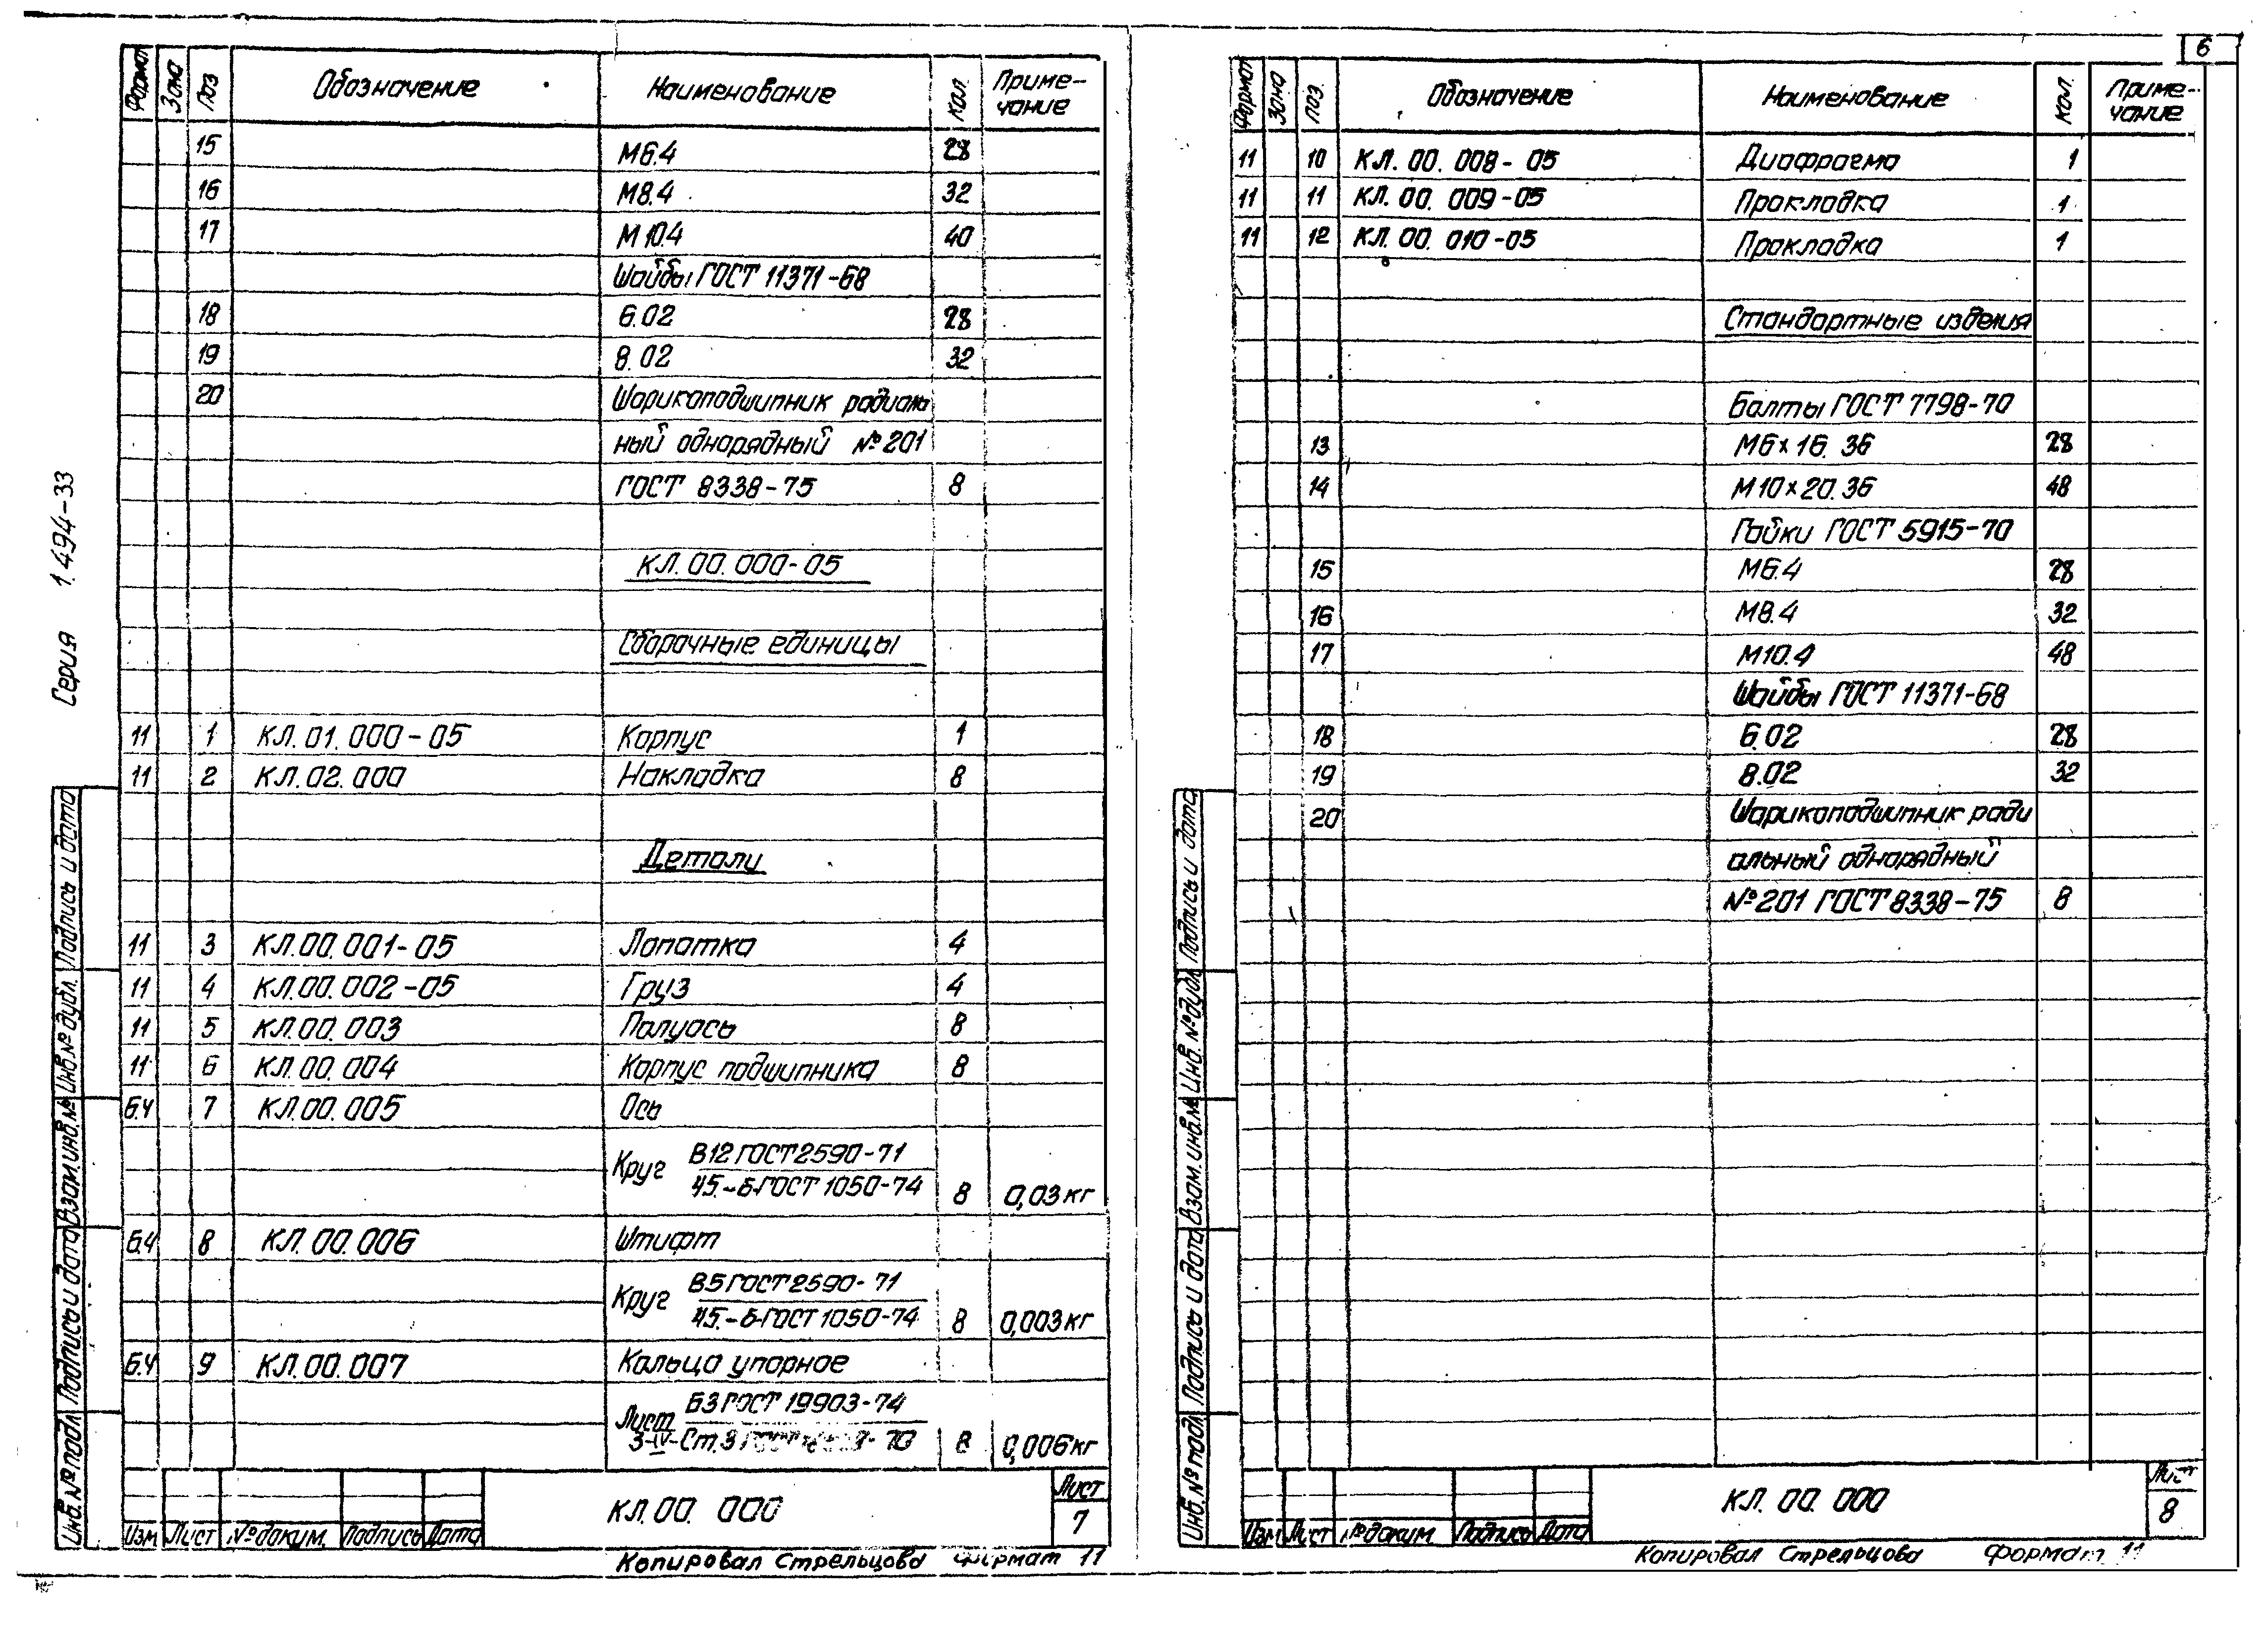 Серия 1.494-33
Формат Зона Поз Обозначение Наименование Кол. Приме-
чание
15 М6.4 28
16 М8.4 32
17 М10.4 40
Шайбы ГОСТ 11371-68
18 6.02 28
19 8.02 32
20 Шарикоподшипник радиаль
ный однорядный №201
ГОСТ 8338-75 8
КЛ.00.000-05
Сборочные единицы
11 1 КЛ.01.000-05 Корпус 1
11 2 КЛ.02.000 Накладка 8
Детали
11 3 КЛ.00.001-05 Лопатка 4
11 4 КЛ.00.002-05 Груз 4
11 5 КЛ.00.003 Полуось 8
11 6 КЛ.00.004 Корпус подшипника 8
Б.Ч 7 КЛ.00.005 Ось
Круг В12 ГОСТ 2590-71
45.-Б-ГОСТ 1050-74 8 0,03 кг
Б.Ч 8 КЛ.00.006 Штифт
Круг В5 ГОСТ 2590-71
45.-Б-ГОСТ 1050-74 8 0,003 кг
Б.Ч 9 КЛ.00.007 Кольцо упорное
Лист Б3 ГОСТ 19903-74
3-IV-Ст.3 ГОСТ 70 8 0,006 кг
Инв.№ подл. Подпись и дата Взам.инв.№ Инв.№ дубл. Подпись и дата
Изм Лист №докум. Подпись Дата
КЛ.00.000
Лист
7
Копировал Стрельцова Формат 11
6
Формат Зона Поз. Обозначение Наименование Кол. Приме-
чание
11 10 КЛ.00.008-05 Диафрагма 1
11 11 КЛ.00.009-05 Прокладка 1
11 12 КЛ.00.010-05 Прокладка 1
Стандартные изделия
Болты ГОСТ 7798-70
13 М6×16.36 28
14 М10×20.36 48
Гайки ГОСТ 5915-70
15 М6.4 28
16 М8.4 32
17 М10.4 48
Шайбы ГОСТ 11371-68
18 6.02 28
19 8.02 32
20 Шарикоподшипник ради
альный однорядный
№201 ГОСТ 8338-75 8
Инв.№ подл Подпись и дата Взам.инв.№ Инв.№ дубл Подпись и дата
Изм Лист №докум. Подпись Дата
КЛ.00.000
Лист
8
Копировал Стрельцова Формат 11